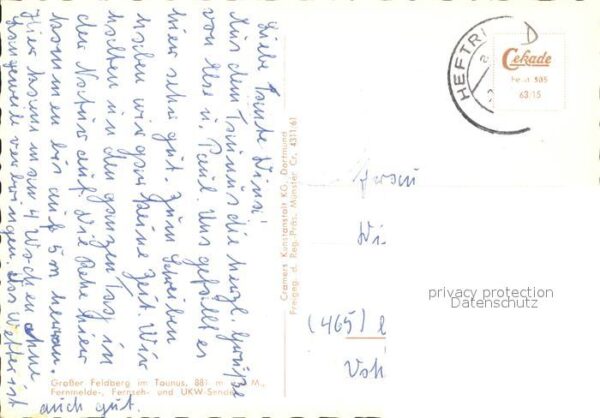 Liebe Tante Winsi!
Aus dem Taunus die herzl. Grüße
von Ilse u. Paul. Uns gefällt es
hier sehr gut. Zum Schreiben
haben wir gar keine Zeit. Wir
halten uns den ganzen Tag in
der Natur auf. Die Rehe hier
kommen bis auf 5 m heran.
Hier kann man 4 Wochen ohne
Langeweile verbringen. Das Wetter ist
auch gut.
Großer Feldberg im Taunus, 881 m ü. M.,
Fernmelde-, Fernseh- und UKW-Sender
Cramers Kunstanstalt KG, Dortmund
Freigeg. d. Reg.-Präs. Münster Cr. 4311/61
HEFTRI
Cekade
63/15
Wi
(465)
privacy protection
Datenschutz